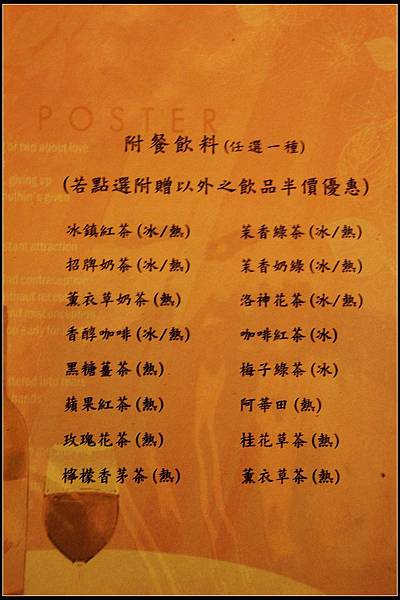 POSTER
or two about love
附餐飲料(任選一種)
giving up
(若點選附贈以外之飲品半價優惠)
冰鎮紅茶(冰/熱) 茉香綠茶(冰/熱)
stant attraction
招牌奶茶(冰/熱) 茉香奶綠(冰/熱)
薰衣草奶茶(熱) 洛神花茶(冰/熱)
香醇咖啡(冰/熱) 咖啡紅茶(冰)
黑糖薑茶(熱) 梅子綠茶(冰)
蘋果紅茶(熱) 阿華田(熱)
hands
玫瑰花茶(熱) 桂花草茶(熱)
檸檬香茅茶(熱) 薰衣草茶(熱)